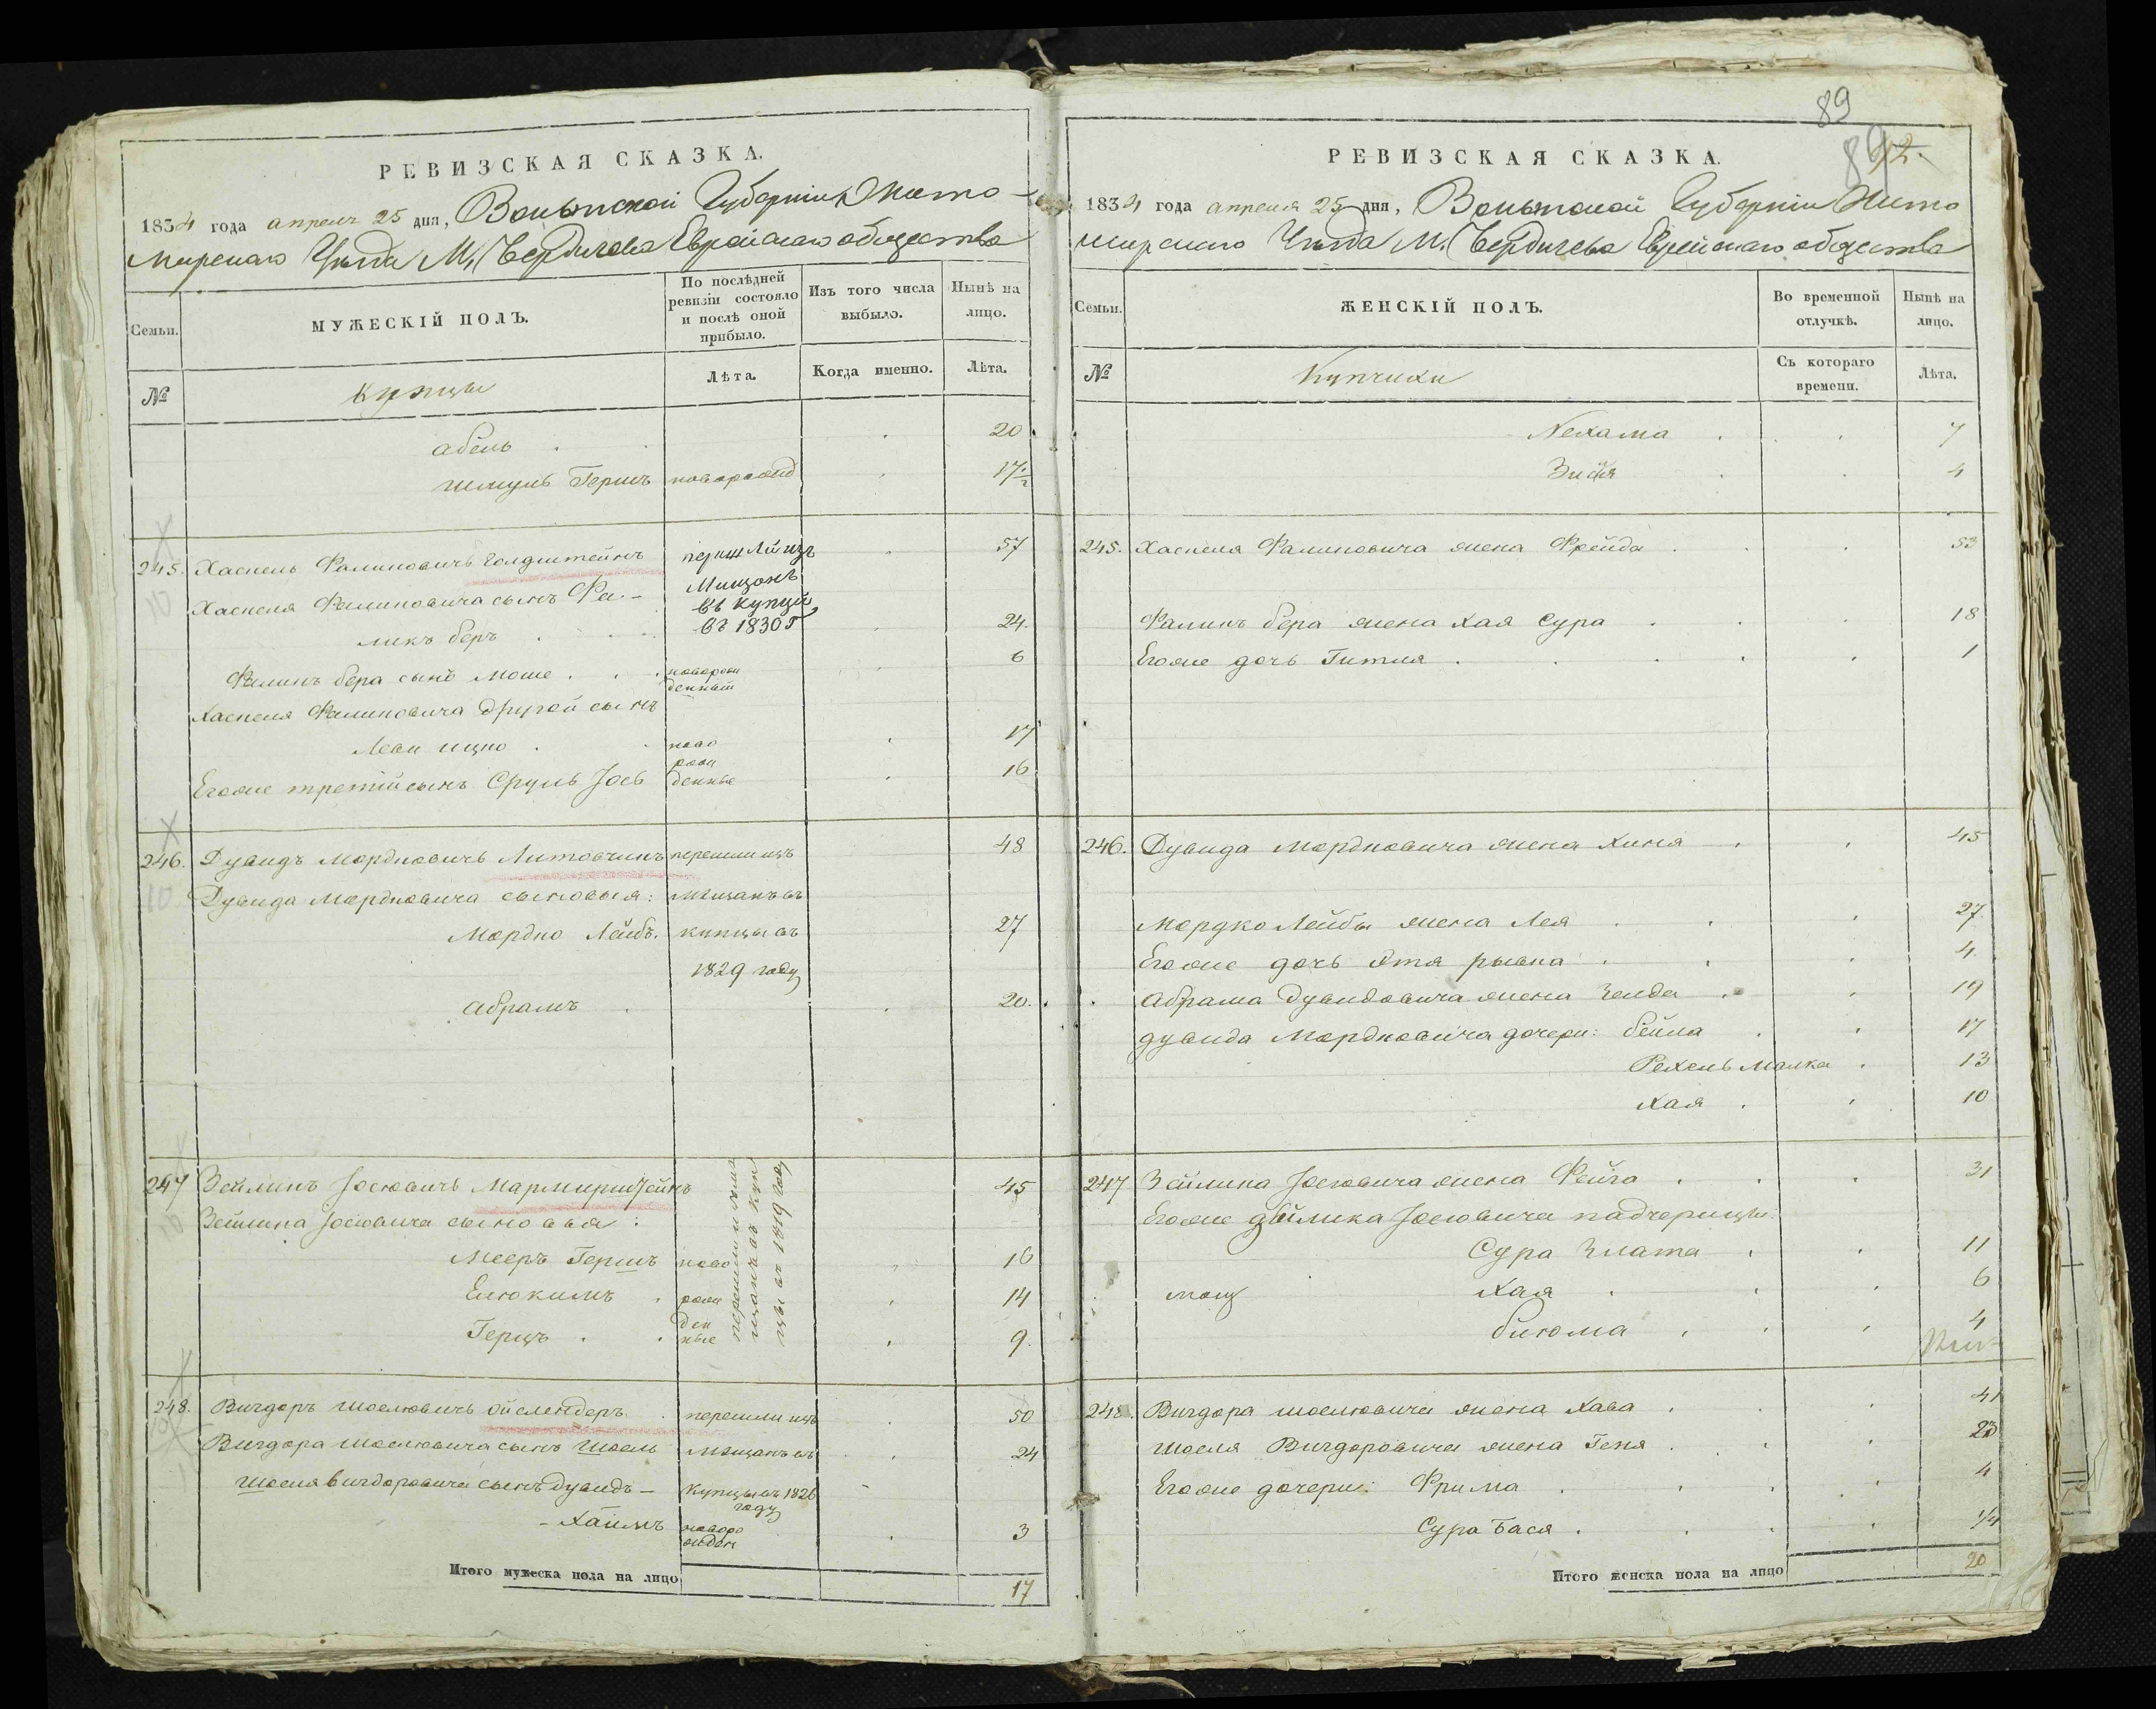 РЕВИЗСКАЯ СКАЗКА.
1834 года апреля 25 дня, Волынской Губерніи Жито-
мирскаго Уѣзда М. Бердичева Еврейскаго общества
Семьи.
МУЖЕСКІЙ ПОЛЪ.
По послѣдней
ревизіи состояло
и послѣ оной
прибыло.
Изъ того числа
выбыло.
Нынѣ на
лицо.
№
Купцы
Лѣта.
Когда именно.
Лѣта.
Абель 20
Шмуль Гершъ 17 1/2
245. Хаскель Фаликовичъ Голдштейнъ 57
Мищанъ
въ купцы
въ 1830 г
Хаскеля Фаликовича сынъ Фа-
ликъ беръ 24.
Фаликъ бера сынъ Моше 6
Хаскеля Фаликовича другой сынъ
Леви ицко 17
Егоже третій сынъ Сруль Іось 16
ново
рож
денные
246. Дувидъ Мордковичъ Литовчикъ перешли изъ 48
Дувида Мордковича сыновья: Мищанъ въ
Мордко Лейбъ. купцы въ 27
1829 году
Абрамъ 20.
247 Зейликъ Іосіовичъ Мармирштейнъ 45
Зейлика Іосіовича сыновья:
Мееръ Гершъ ново 16
Еліокимъ рож 14
Герцъ ден 9.
ные
перешли изъ ми
щанъ въ куп
цы въ 1819 году
248. Вигдоръ Шоеліовичъ Ойслендеръ перешли изъ 50
Вигдора Шоеліовича сынъ Шоель Мищанъ въ 24
Шоеля Вигдоровича сынъ Дувидъ- Купцы въ 1826
году
-Хаимъ новоро 3
жден
Итого мужеска пола на лицо 17
89
РЕВИЗСКАЯ СКАЗКА.
1834 года апреля 25 дня, Волынской Губерніи Жито
мирскаго Уѣзда М. Бердичева Еврейскаго общества
Семьи.
ЖЕНСКІЙ ПОЛЪ.
Во временной
отлучкѣ.
Нынѣ на
лицо.
№
Купчихи
Съ котораго
времени.
Лѣта.
Нехама 7
Зися 4
245. Хаскеля Фаликовича жена Фрейда 53
Фаликъ бера жена Хая Сура 18
Егоже дочь Гитля 1
246. Дувида Мордковича жена Хиня 45
Мордко Лейбы жена Лея 27.
Егоже дочь Этя рывка 4.
Абрама Дувидовича жена Зелда 19
дувида Мордковича дочери: бейла 17
Рехель Малка 13
Хая 10
247 Зейлика Іосіовича жена Фейга 31
Егоже Зейлика Іосіовича падчерицы:
Сура Злата 11
Хая 6
блюма 4
248. Вигдора Шоеліовича жена Хава 41
Шоеля Вигдоровича жена Геня 23
Егоже дочери: Фрима 4
Сура Бася 1/4
Итого женска пола на лицо 20